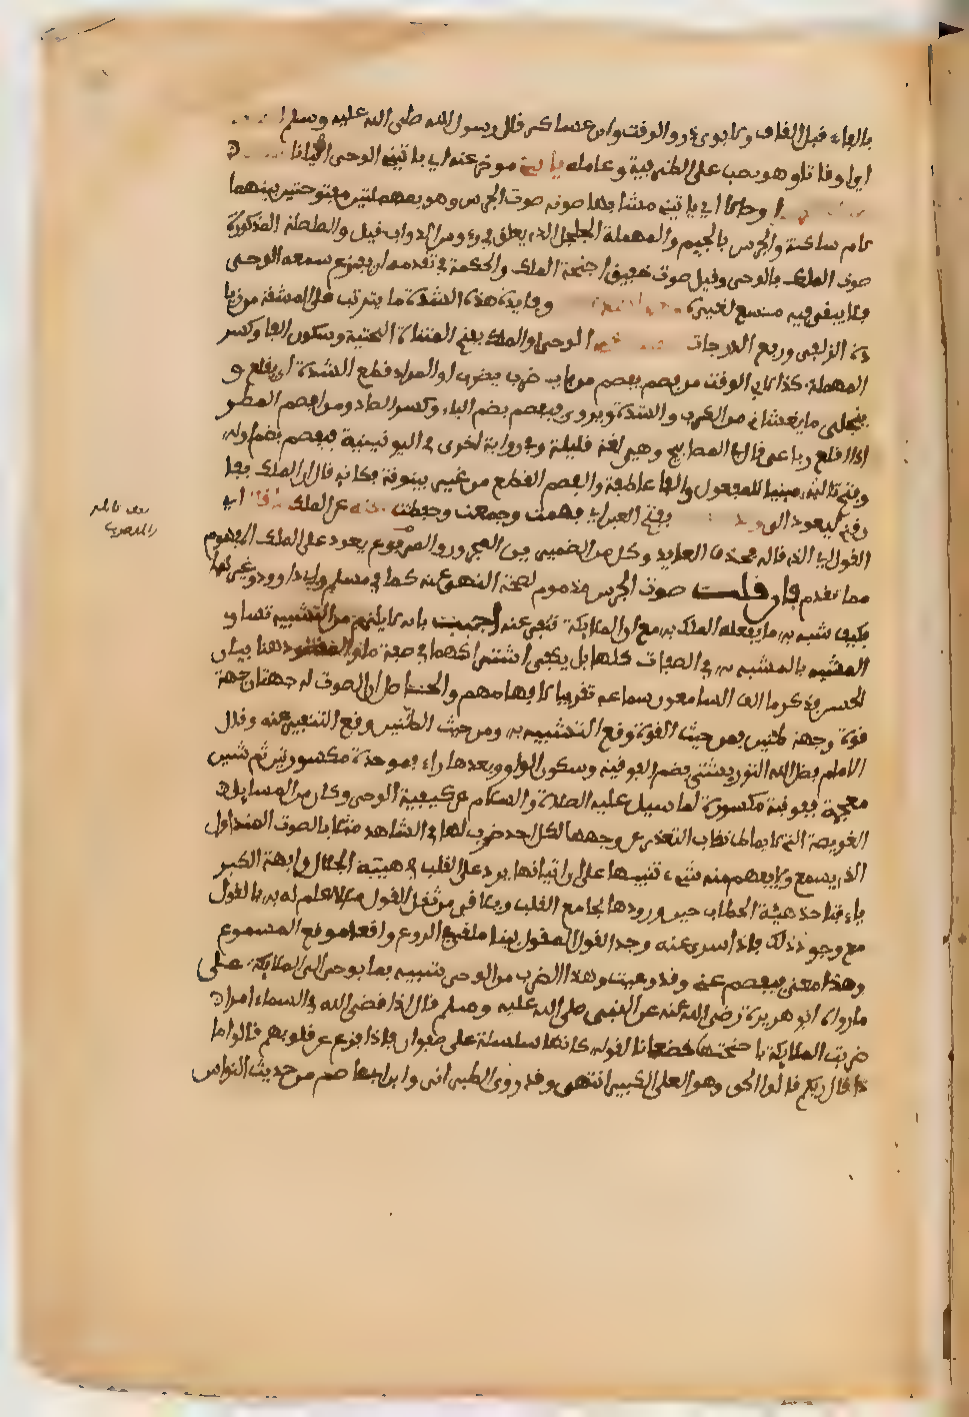 بالفاء قبل القاف ولابوي ذر والوقت وابن عساكر قال رسول الله صلى الله عليه وسلم
اي اوقاتا وهو نصب على الظرفية وعامله ياتيني موخر عنه اي ياتيني الوحي احيانا
او حال اي ياتيني مشابها صوته صوت الجرس وهو بمهملتين مفتوحتين بينهما
لام ساكنة والجرس بالجيم والمهملة الجلجل الذي يعلق في روس الدواب قيل والصلصلة المذكورة
صوت الملك بالوحي وقيل صوت حفيف اجنحة الملك والحكمة في تقدمه ان يفرع سمعه الوحي
فلا يبقى فيه متسع لغيره وفايدة هذه الشدة ما يترتب على المشقة من زيا
دة الزلفى ورفع الدرجات الوحي او الملك بفتح المثناة التحتية وسكون الفا وكسر
المهملة كذا لابي الوقت من فصم يفصم من باب ضرب يضرب والمراد قطع الشدة اي يقلع و
ينجلي ما يغشاني من الكرب والشدة ويروى فيفصم بضم الياء وكسر الصاد من افصم المطر
اذا اقلع رباعي قال في المصابيح وهي لغة قليلة وفي رواية اخرى في اليونينية فيفصم بضم اوله
وفتح ثالثه مبنيا للمفعول والفا عاطفة والفصم القطع من غير بينونة فكانه قال ان الملك يفا
رقني ليعود الي بفتح العين اي فهمت وجمعت وحفظت عنه عن الملك ما قال اي
القول الذي قاله فحذف العايد وكل من الضميرين المجرور والمرفوع يعود على الملك المفهوم
مما تقدم فان قلت صوت الجرس مذموم لصحة النهي عنه كما في مسلم وابي داوود وغيرهما
فكيف شبه به ما يفعله الملك به مع ان الملايكة تنفر عنه اجيب بانه لا يلزم من التشبيه تساوي
المشبه بالمشبه به في الصفات كلها بل يكفي اشتراكهما في صفة ما والمقصود هنا بيان
الجنس فذكر ما الف السامعون سماعه تقريبا لافهامهم والحاصل ان الصوت له جهتان جهة
قوة وجهة طنين فمن حيث القوة وقع التشبيه به ومن حيث الطنين وقع التنفير عنه وقال
الامام فضل الله التوربشتي بضم الفوقية وسكون الواو وبعدها راء فموحدة مكسورتين ثم شين
معجمة ففوقية مكسورة لما سيل عليه الصلاة والسلام عن كيفية الوحي وكان من المسايل
العويصة التي لا يماط نقاب التعذر عن وجهها لكل احد ضرب لها في الشاهد مثلا بالصوت المتدارك
الذي يسمع ولا يفهم منه شيء تنبيها على ان اتيانها يرد على القلب في هيبة الجلال وابهة الكبر
ياء فتاخذ هيبة الخطاب حين ورودها بمجامع القلب ويلاقي من ثقل القول ما لا علم له به بالقول
مع وجود ذلك فاذا سري عنه وجد القول المقول بينا ملقى في الروع واقعا موقع المسموع
وهذا معنى فيفصم عني وقد وعيت وهذا الضرب من الوحي شبيه بما يوحى الى الملايكة على
ما رواه ابو هريرة رضي الله عنه عن النبي صلى الله عليه وسلم قال اذا قضى الله في السماء امرا
ضربت الملايكة باجنحتها خضعانا لقوله كانها سلسلة على صفوان فاذا فزع عن قلوبهم قالوا ما
ذا قال ربكم قالوا الحق وهو العلي الكبير انتهى وقد روى الطبراني وابن ابي عاصم من حديث النواس